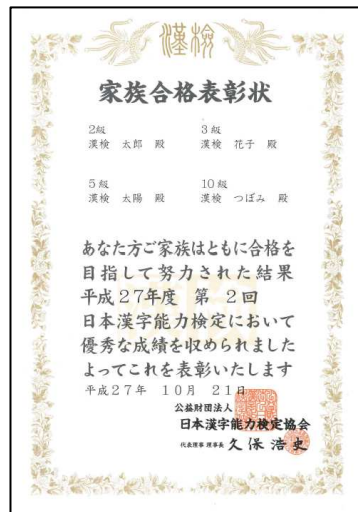 漢検
家族合格表彰状
2級 3級
漢検 太郎 殿 漢検 花子 殿
5級 10級
漢検 太陽 殿 漢検 つぼみ 殿
あなた方ご家族はともに合格を
目指して努力された結果
平成27年度 第 2回
日本漢字能力検定において
優秀な成績を収められました
よってこれを表彰いたします
平成27年 10月 21日
公益財団法人
日本漢字能力検定協会
代表理事 理事長 久保浩史